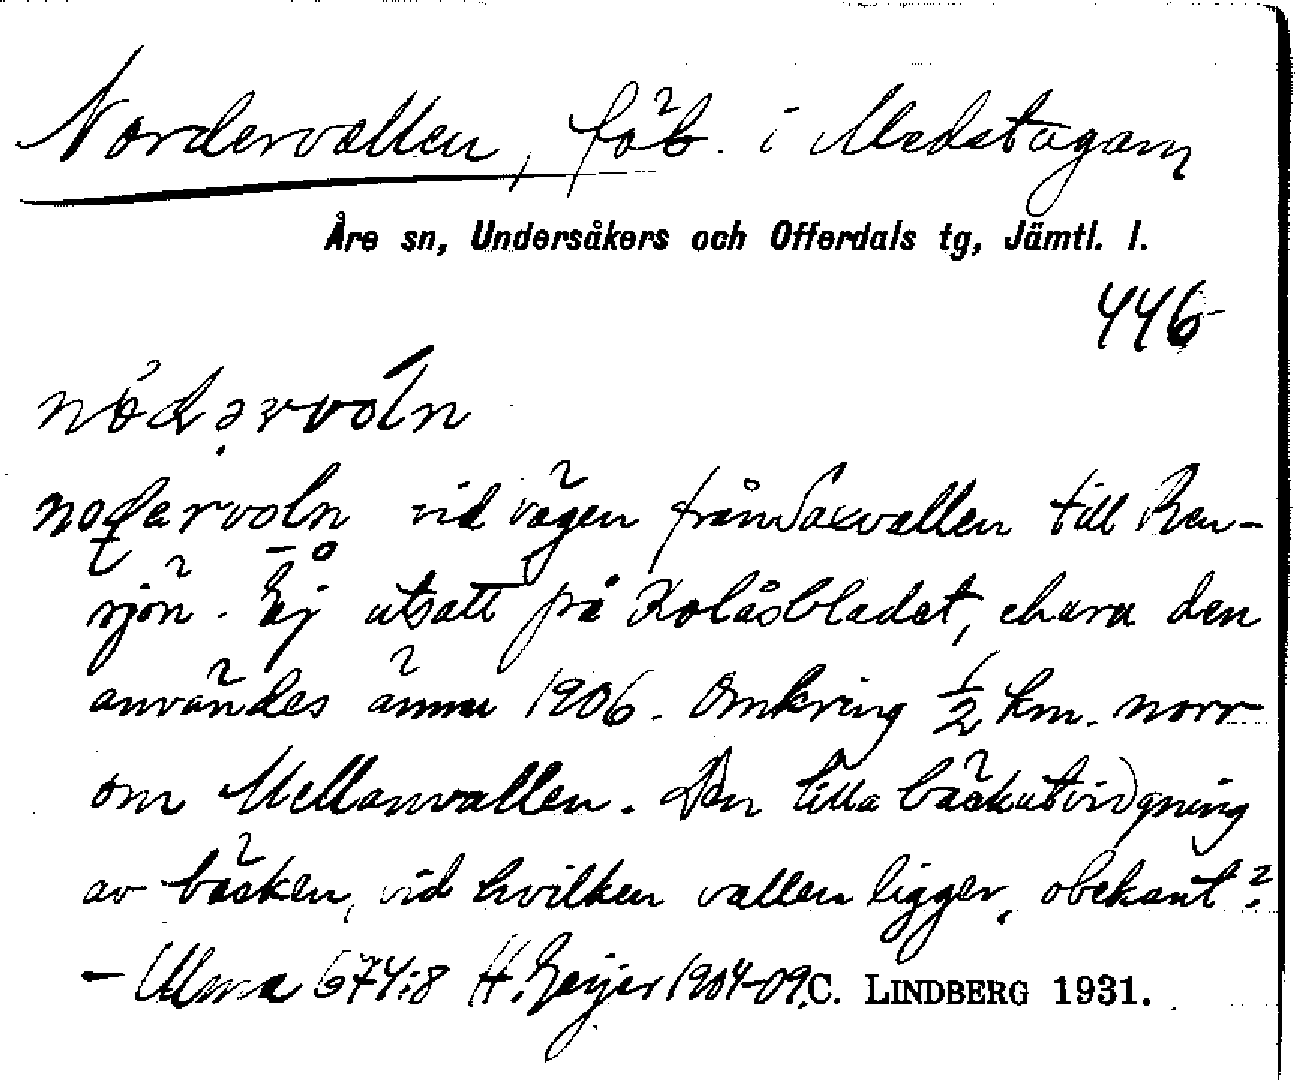 Nordervallen, fäb. i Medstugan
Åre sn, Undersåkers och Offerdals tg, Jämtl. l.
446
vid vägen från Saxvallen till Ren-
sjön. Ej utsatt på Kolåsbladet, ehuru den
användes ännu 1906. Omkring ½ km. norr
om Mellanvallen. Den lilla bäckutvidgning
av bäcken, vid hvilken vallen ligger, obekant?
- Ulma 674:8 H. Geijer 1904-09. C. LINDBERG 1931.